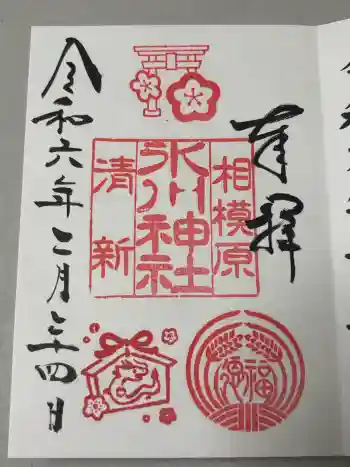 奉拝
相模原
氷川神社
清新
令和六年二月二十四日
福